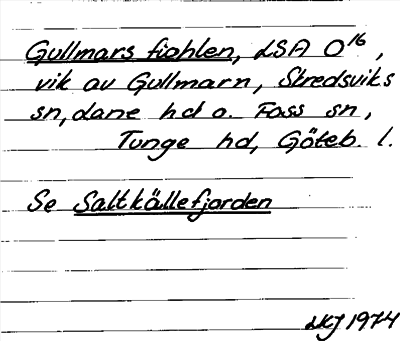 Gullmars fiohlen, LSA O16,
vik av Gullmarn, Skredsviks
sn, Lane hd o. Foss sn,
Tunge hd, Göteb. l.
Se Saltkällefjorden
LKJ 1974